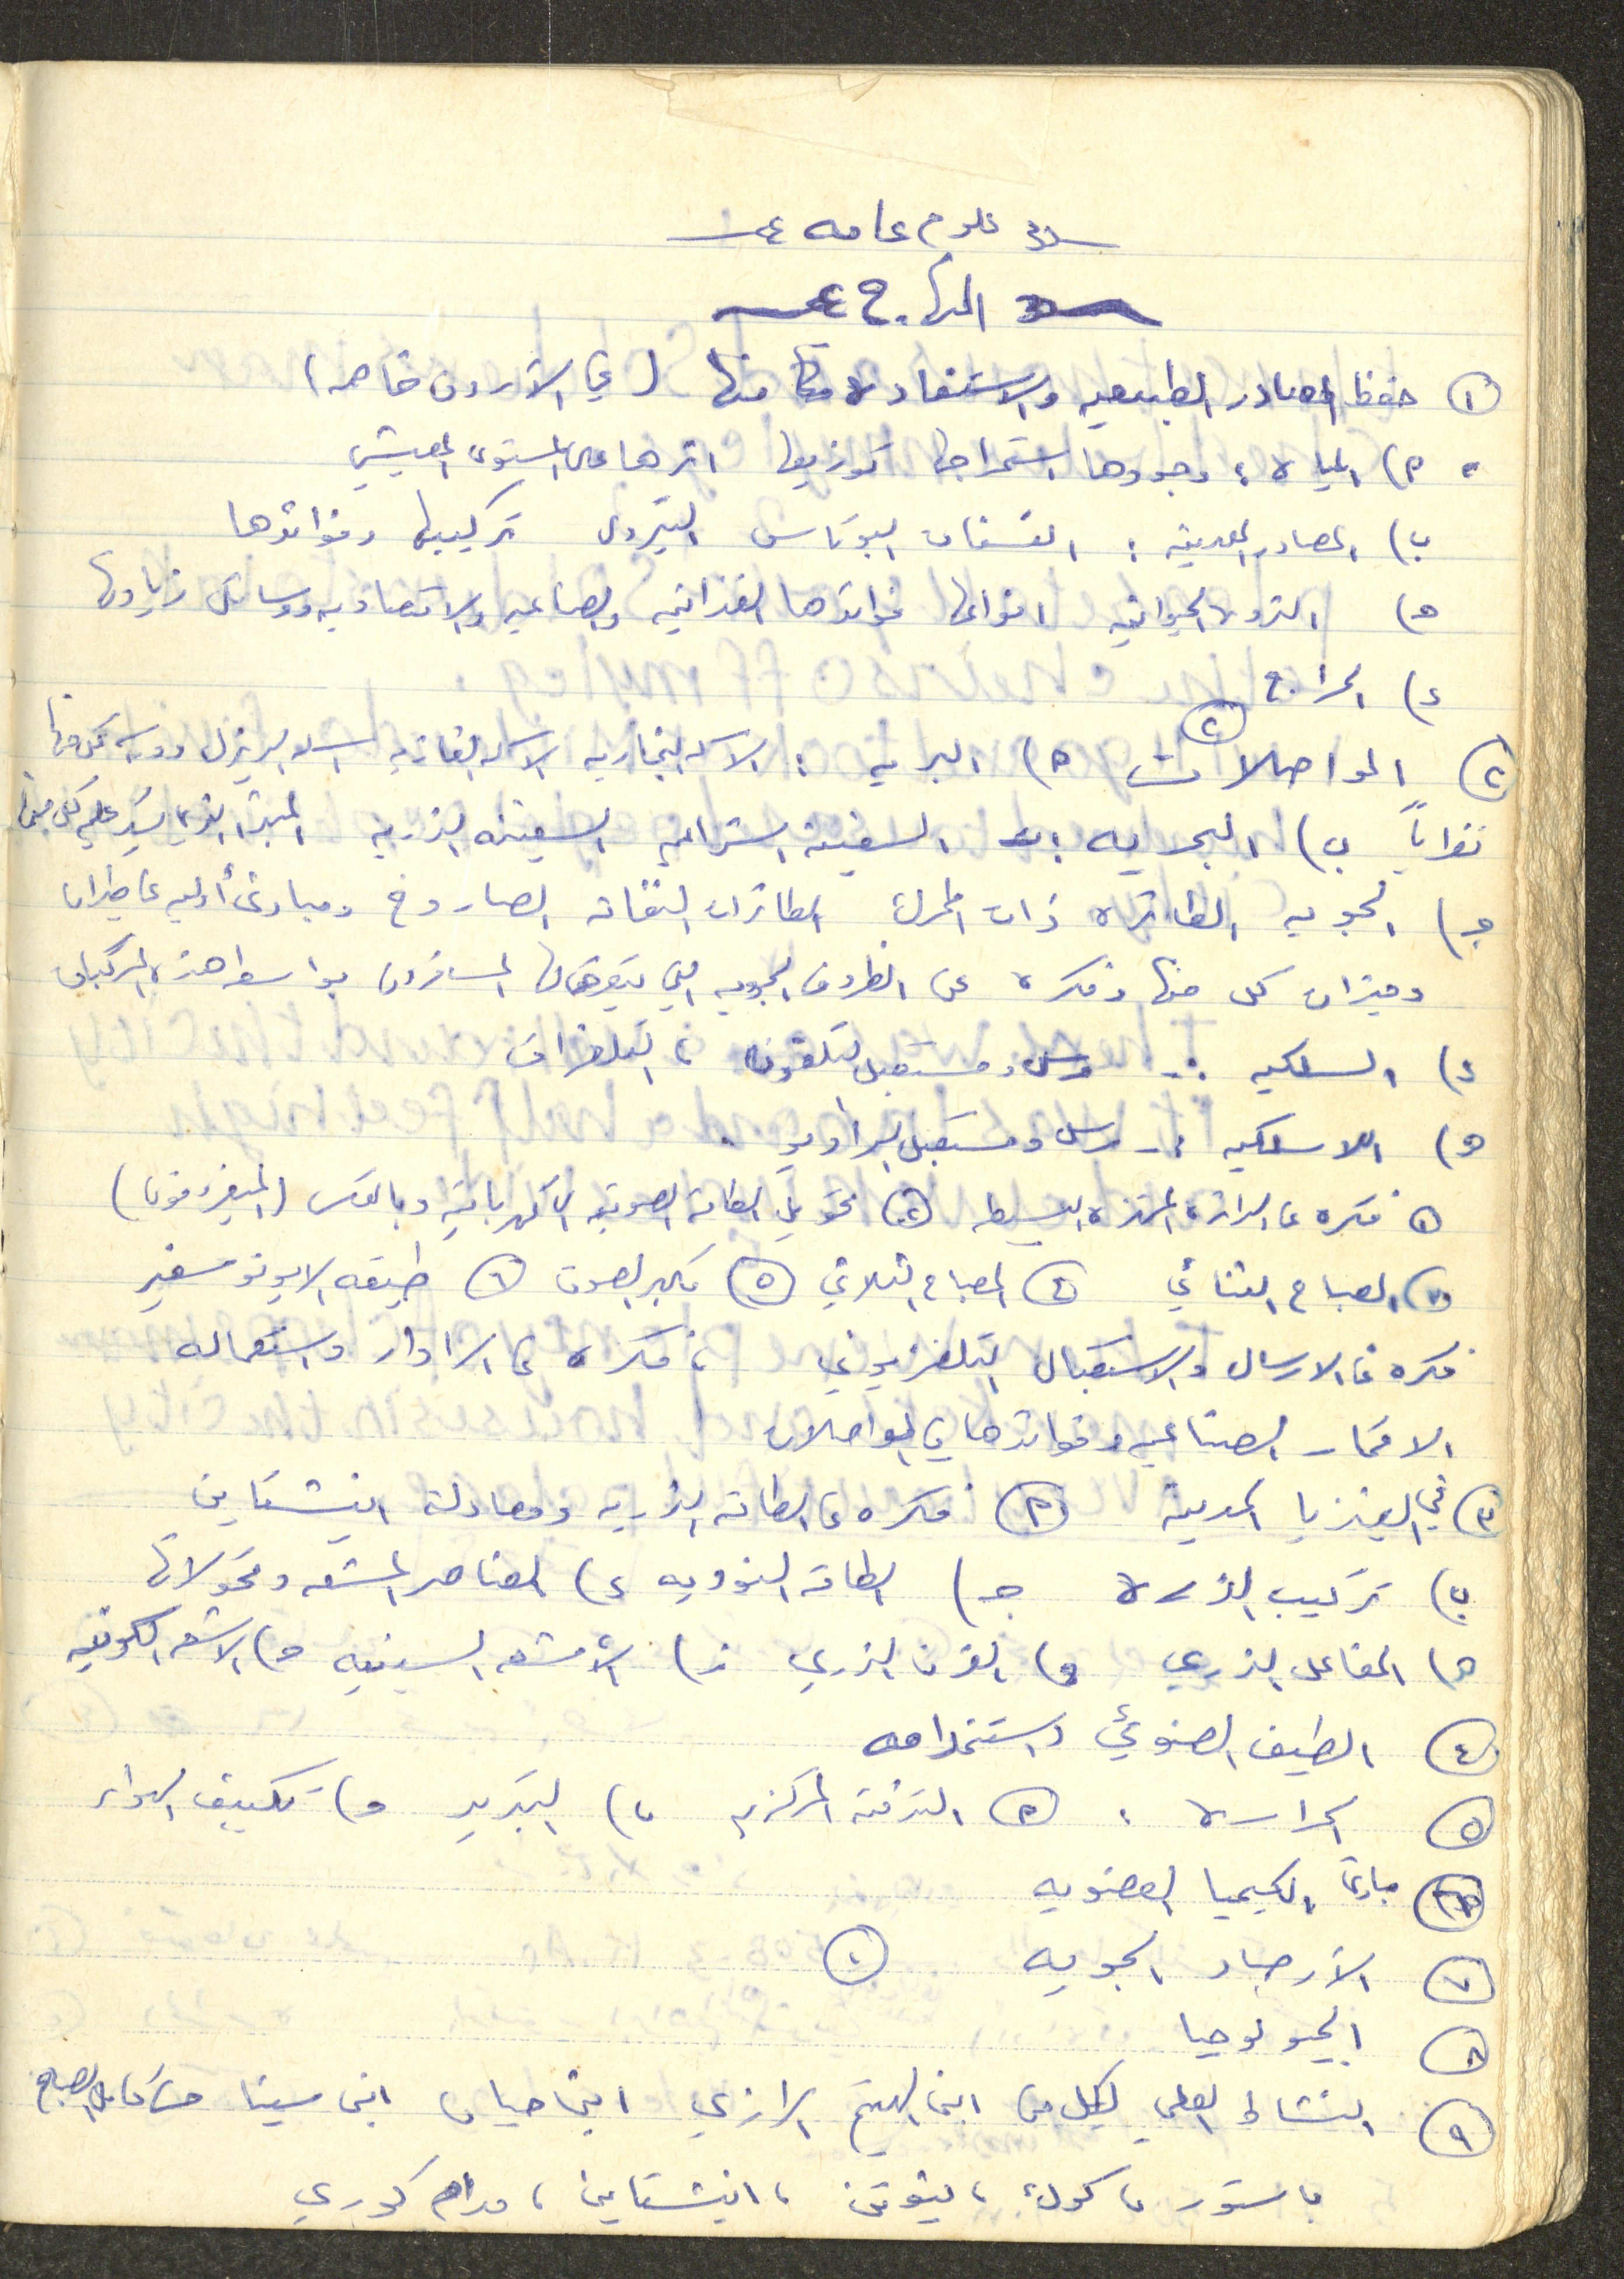 علوم عامه
المنهاج
١ حفظ المصادر الطبيعيه والاستفاده منها (في الأردن خاصه)
٢) المياه : وجودها استخراجها توزيعها اثرها على المستوى المعيشي
ب) المصادر المعدنيه : الفسفات البوتاس البترول تركيبها وفوائدها
ه) الثروه الحيوانيه انواعها فوائدها الغذائيه والصناعيه والاقتصاديه ووسائل زيادتها
د) الحراج
٢ المواصلات ٢) البريه : الاله البخاريه الاله الغازيه الديزل
ب) البحريه السفينة الشراعيه السفينه الذريه المبدأ الذي تسير عليه كل منها
ج) الجويه الطائره ذات المحرك الطائرات النفاثه الصاروخ ومبادئ أوليه عن طيران
وميزات كل منها وفكره عن الظروف الجويه التي يتعرض لها المسافرون بواسطة هذه المركبات
د) السلكيه :- مرسل ومستقبل التلفون ، التلغراف
ه) اللاسلكيه :- مرسل ومستقبل الراديو .
١ فكره عن الدائره المهتزه البسيطه ٢ تحويل الطاقه الصوتيه الى كهربائيه وبالعكس (الميغروفون)
٣ المصباح الثنائي ٤ المصباح الثلاثي ٥ مكبر الصوت ٦ طبقه الايونوسفير
فكره عن الارسال والاستقبال التلفزيوني ، فكره عن الرادار واستعماله
الاقمار الصناعيه وفوائدها في المواصلات
٣ في الفيزيا الحديثه ٢ فكره عن الطاقه الذريه ومعادلة اينشتاين
ب) تركيب الذره ج) الطاقه النوويه د) العناصر المشعه وتحولاتها
ه) المفاعل الذري و) الفرن الذري ز) الأشعه السينيه ح) الاشعه الكونيه
٤ الطيف الضوئي واستخدامه
٥ الحراره : ٢ التدفئه المركزيه ب) التبريد ج) تكييف الهواء
٦ مبادئ الكيميا العضويه
٧ الأرصاد الجويه
٨ الجيولوجيا
٩ النشاط العلمي لكل من ابن الهيثم الرازي ابن حيان ابن سينا
باستور ، كوك ، نيوتن ، اينشتاين ، مدام كوري